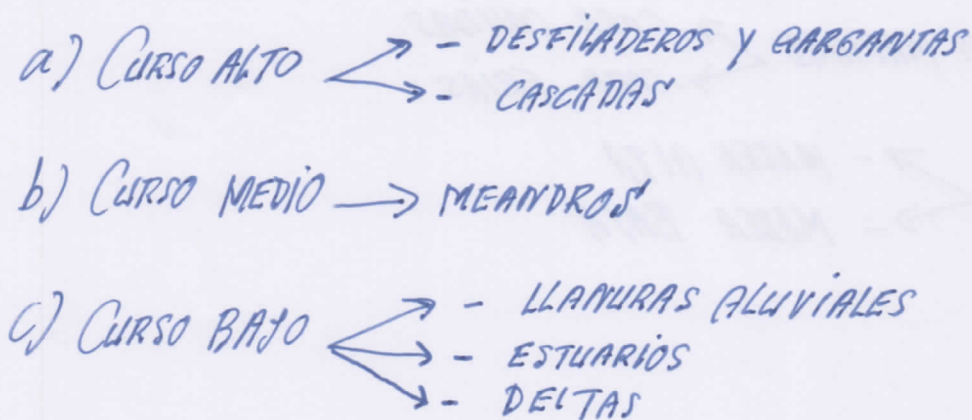 a) CURSO ALTO → - DESFILADEROS Y GARGANTAS
→ - CASCADAS
b) CURSO MEDIO → MEANDROS
c) CURSO BAJO → - LLANURAS ALUVIALES
→ - ESTUARIOS
→ - DELTAS